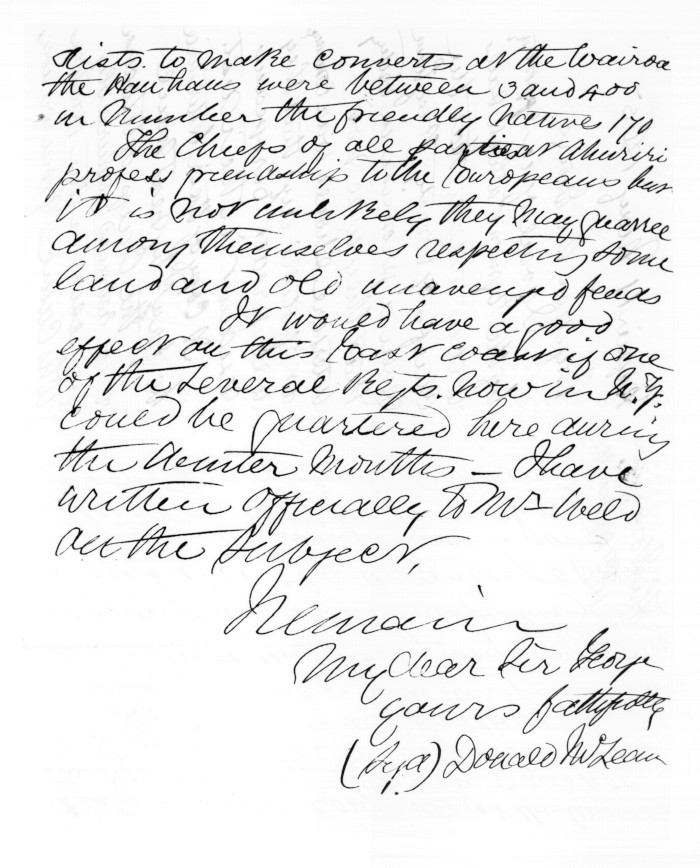 rists. to make converts at the Wairoa
the Hauhaus were between 3 and 400
in number the friendly natives 170
The Chiefs of all parties at Ahuriri
profess friendship to the Europeans but
it is not unlikely they may quarrel
among themselves respecting some
land and old unavenged feuds
It would have a good
effect on this East Coast if one
of the several Regts. now in N.Z.
could be quartered here during
the Winter months – I have
written officially to Mr Weld
on the subject,
I remain
My dear Sir George
yours faithfully
(Sgd) Donald McLean